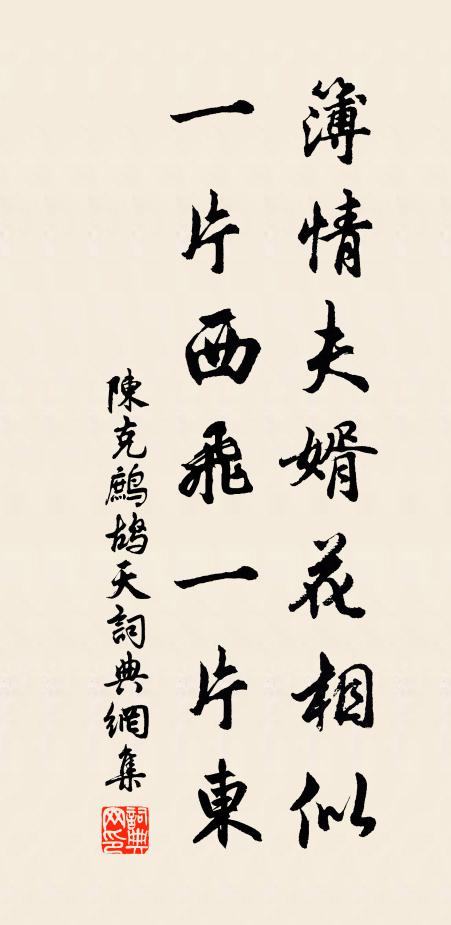 簿情夫婿花相似
一片西飛一片東
陳克鷓鴣天詞典網集
詞典网印